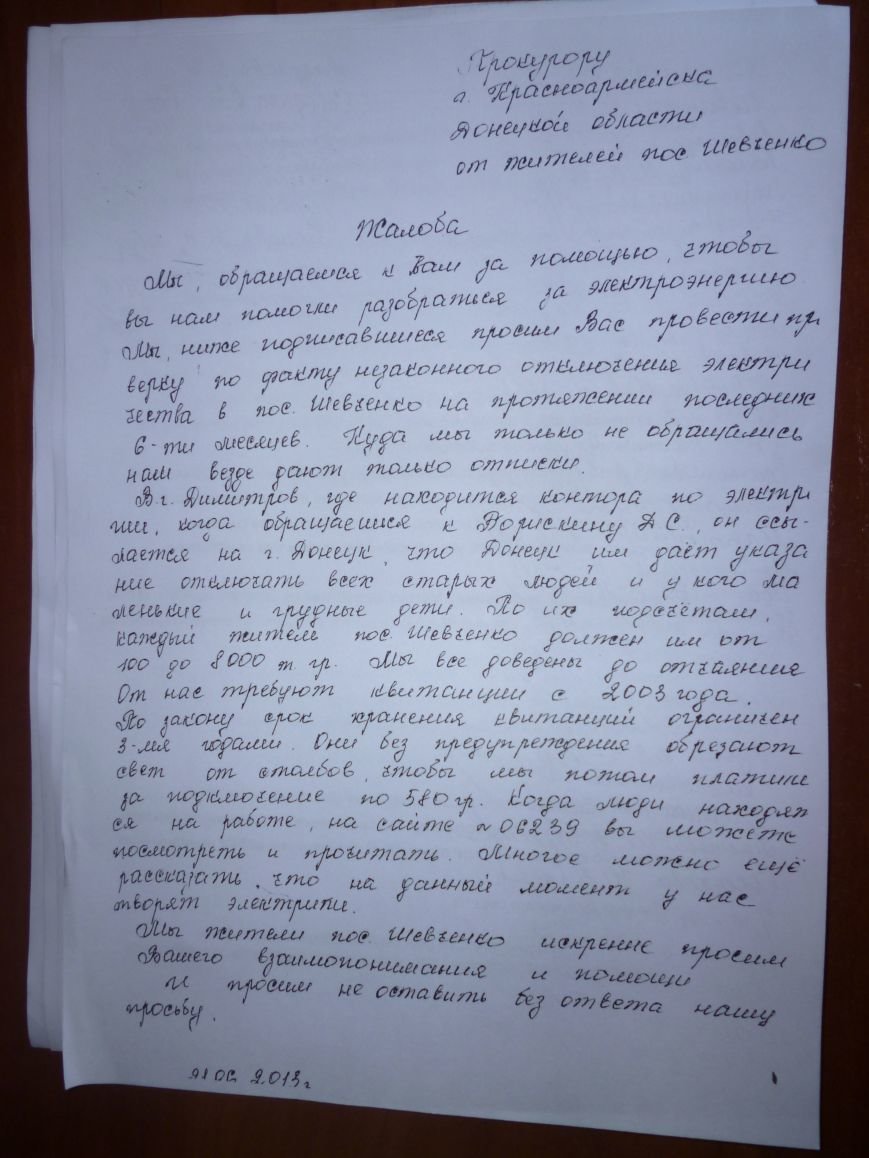 Прокурору
г. Красноармейска
Донецкой области
от жителей пос. Шевченко
Жалоба
Мы, обращаемся к Вам за помощью, чтобы
вы нам помогли разобраться за электроэнергию
Мы, ниже подписавшиеся просим Вас провести пр
верку по факту незаконного отключения электри
чества в пос. Шевченко на протяжении последних
6-ти месяцев. Куда мы только не обращались
нам везде дают только отписки.
В г. Димитров, где находится контора по электри
ии, когда обращаемся к Д.С., он ссы-
лается на г. Донецк, что Донецк им даёт указа
ние отключать всех старых людей и у кого ма
ленькие и грудные дети. По их подсчётам,
каждый жителей пос. Шевченко должен им от
100 до 8000 т. гр. Мы все доведены до отчаяния
От нас требуют квитанции с 2003 года.
По закону срок хранения квитанций ограничен
3-мя годами. Они без предупреждения обрезают
свет от столбов, чтобы мы потом платили
за подключение по 580 гр. Когда люди находят
ся на работе, на сайте 06239 вы можете
посмотреть и прочитать. Многое можно ещё
рассказать, что на данный момент у нас
творят электрики.
Мы жители пос. Шевченко искренне просим
Вашего взаимопонимания и помощи
и просим не оставить без ответа нашу
просьбу.
2013г